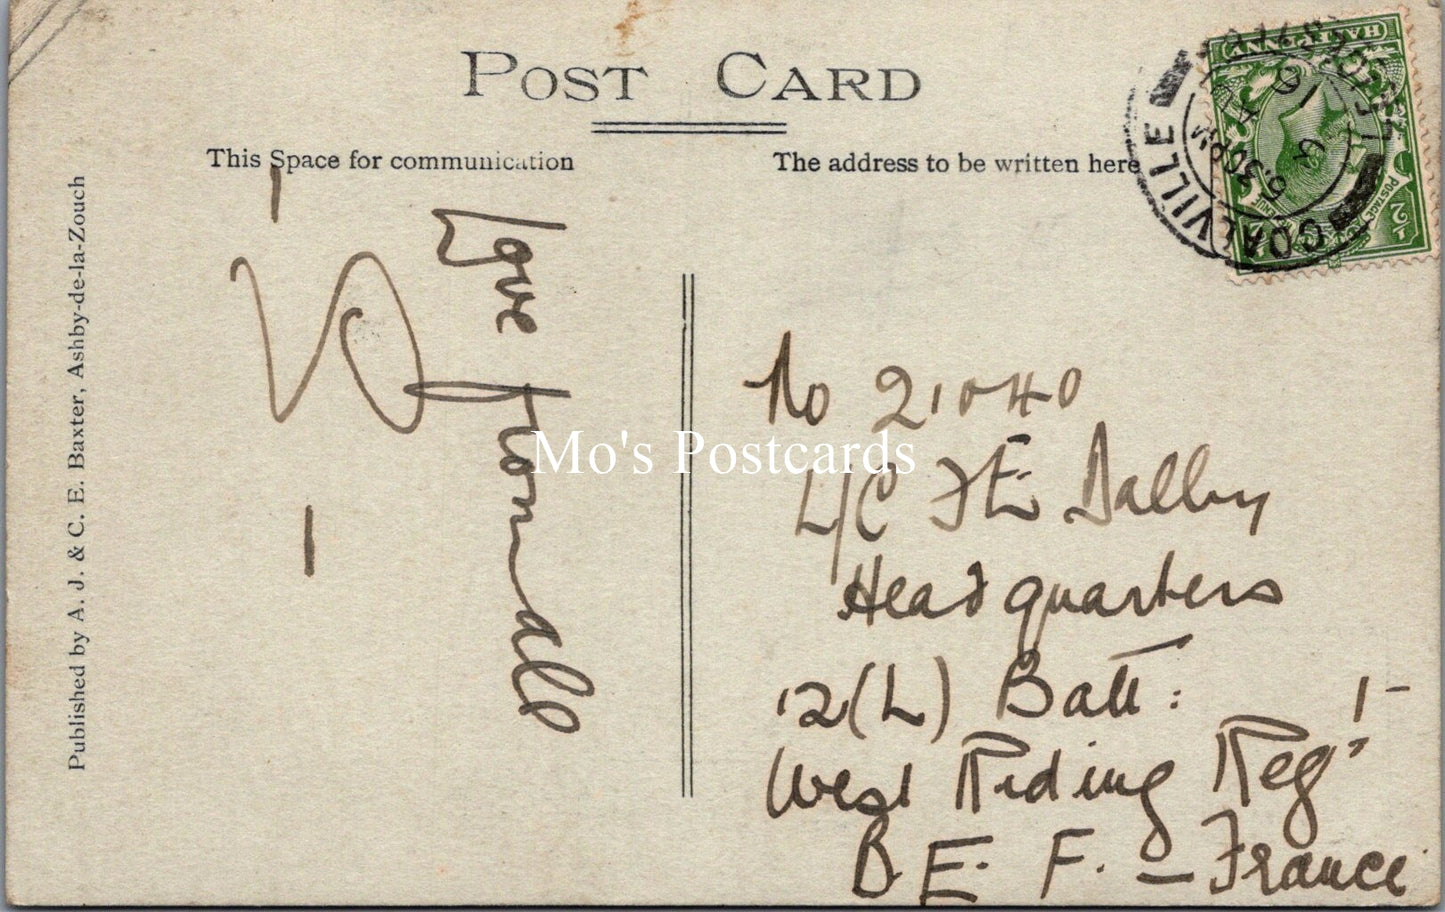 POST CARD
This Space for communication
The address to be written here
Published by A. J. & C. E. Baxter, Ashby-de-la-Zouch
Love from all
No 21040
L/C F E Dalby
Headquarters
12 (L) Batt:
West Riding Regt
B. E. F. – France
COALVILLE
LEICESTER
6.30 PM
16
HALFPENNY
POSTAGE
REVENUE
½
Mo's Postcards